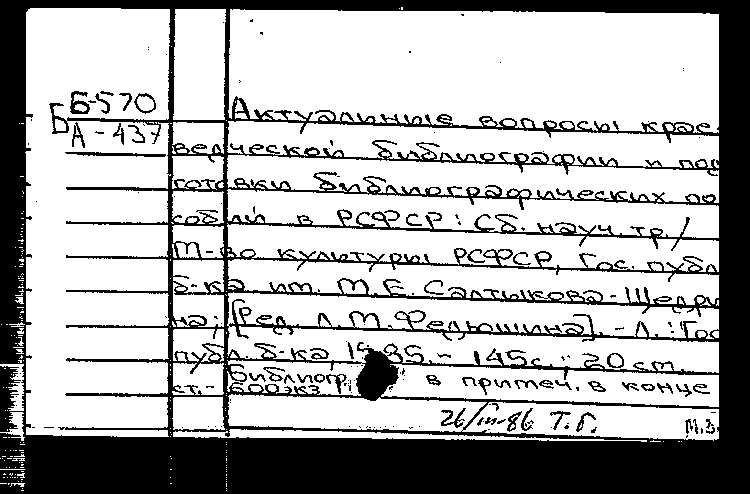 Б-570
Б А-437
Актуальные вопросы крае-
ведческой библиографии и под
готовки библиографических по
собий в РСФСР: Сб. науч. тр./
М-во культуры РСФСР, Гос. публ
б-ка им. М.Е. Салтыкова-Щедри
на; [Ред. Л.М. Федюшина]. - Л.: Гос
публ. б-ка, 1985. - 145с.; 20см.
Библиогр. в примеч. в конце
ст. - 600экз.
26/III-86 Т.Г.
М.З.